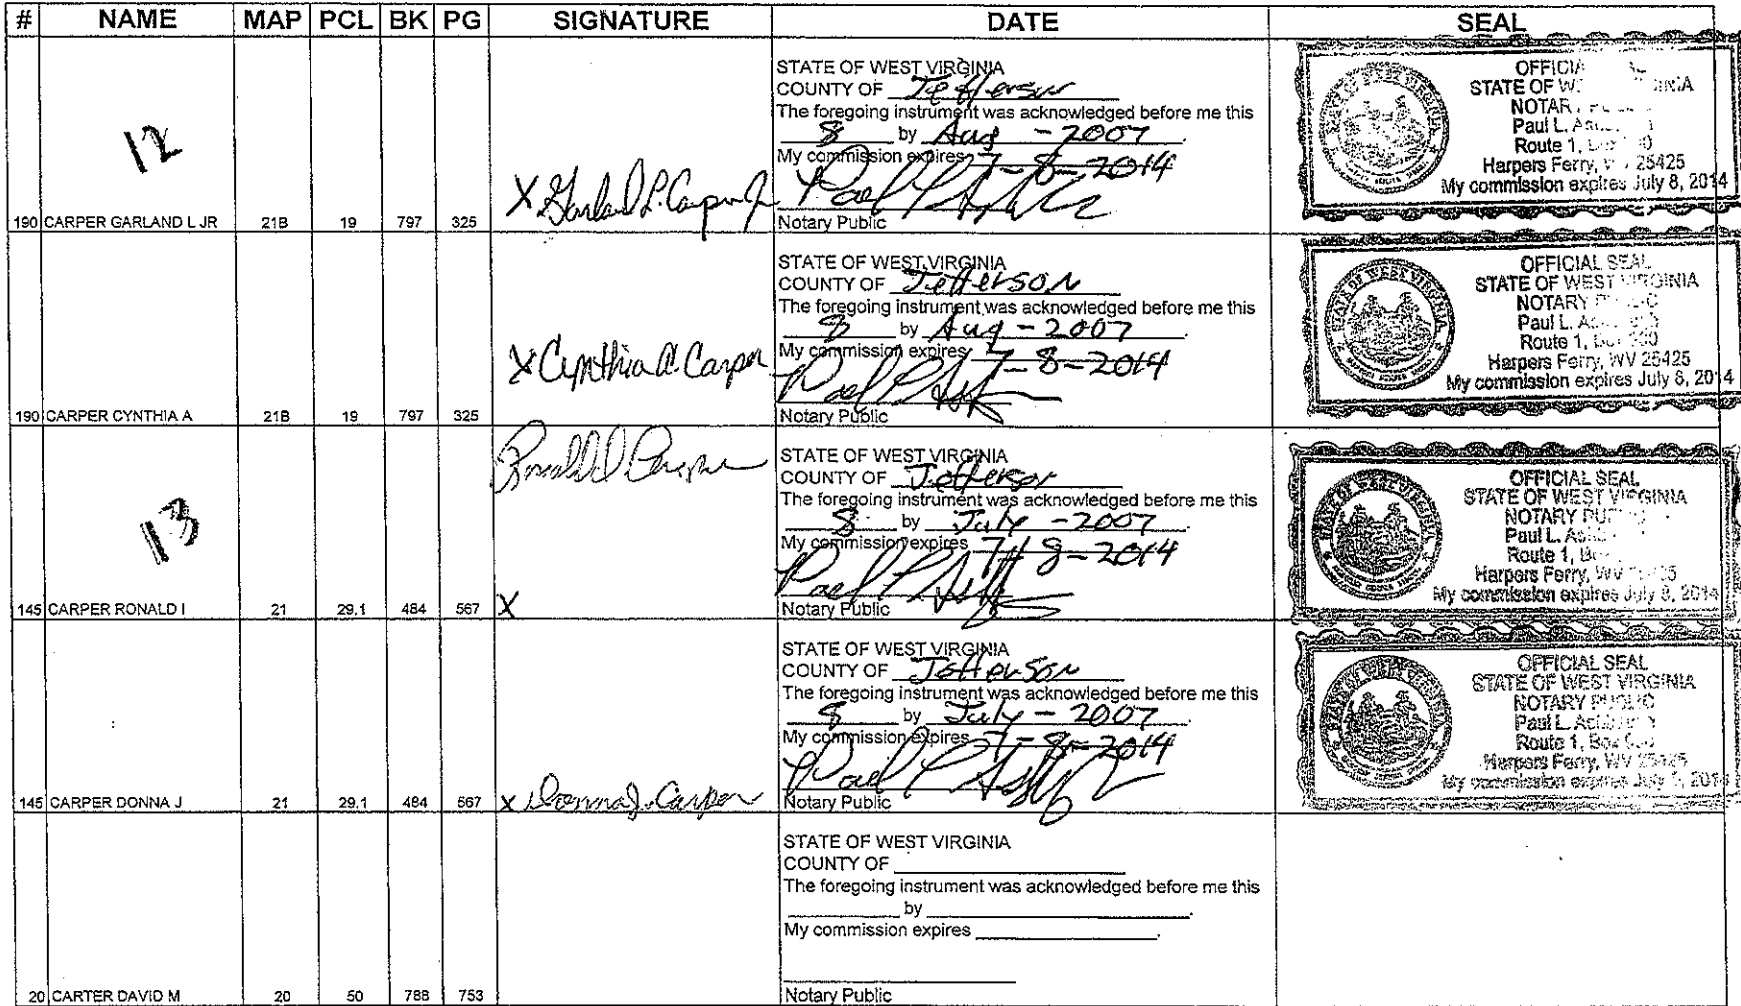 # NAME MAP PCL BK PG SIGNATURE DATE SEAL
12
190 CARPER GARLAND L JR 21B 19 797 325
X Garland L. Carper Jr
STATE OF WEST VIRGINIA
COUNTY OF Jefferson
The foregoing instrument was acknowledged before me this
8 by Aug - 2007.
My commission expires 7-8-2014
Notary Public
STATE OF
NOTAR
Paul L.
Route 1,
Harpers Ferry, 25425
My commission expires July 8, 2014
190 CARPER CYNTHIA A 21B 19 797 325
X Cynthia A Carper
STATE OF WEST VIRGINIA
COUNTY OF Jefferson
The foregoing instrument was acknowledged before me this
8 by Aug - 2007.
My commission expires 7-8-2014
Notary Public
OFFICIAL SEAL
STATE OF WEST VIRGINIA
NOTARY
Paul L.
Route 1,
Harpers Ferry, WV 25425
My commission expires July 8, 2014
13
145 CARPER RONALD I 21 29.1 484 567
Ronald I Carper
X
STATE OF WEST VIRGINIA
COUNTY OF Jefferson
The foregoing instrument was acknowledged before me this
8 by July - 2007.
My commission expires 7-8-2014
Notary Public
OFFICIAL SEAL
STATE OF WEST VIRGINIA
NOTARY
Paul L.
Route 1,
Harpers Ferry, WV
My commission expires July 8, 2014
145 CARPER DONNA J 21 29.1 484 567
X Donna J. Carper
STATE OF WEST VIRGINIA
COUNTY OF Jefferson
The foregoing instrument was acknowledged before me this
8 by July - 2007.
My commission expires 7-8-2014
Notary Public
OFFICIAL SEAL
STATE OF WEST VIRGINIA
NOTARY PUBLIC
Paul L.
Route 1, Box
Harpers Ferry, WV 25425
My commission expires July 8, 2014
20 CARTER DAVID M 20 50 788 753
STATE OF WEST VIRGINIA
COUNTY OF
The foregoing instrument was acknowledged before me this
by .
My commission expires .
Notary Public